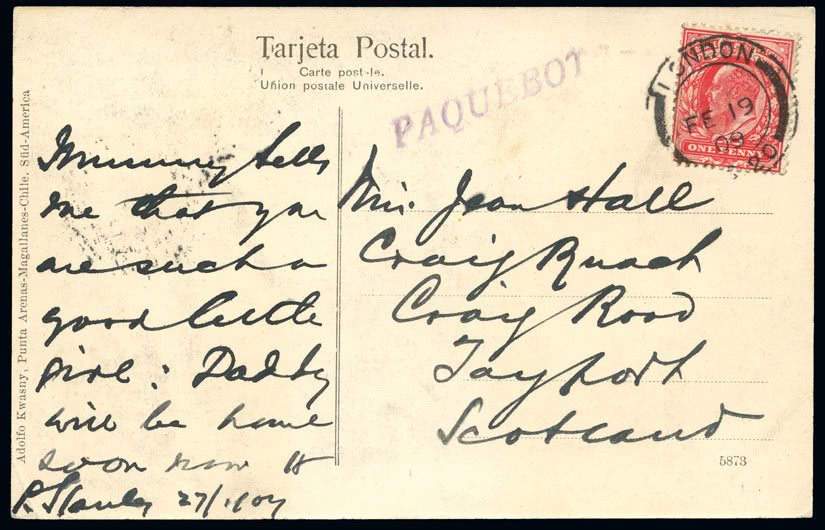 Tarjeta Postal.
Carte postale.
Unión postale Universelle.
Adolfo Kwasny, Punta Arenas-Magallanes-Chile. Süd-America
PAQUEBOT
LONDON
FE 19
09
ONE PENNY
Mummy tells
me that you
are such a
good little
girl: Daddy
will be home
soon now
P. Stanley 27/1/09
Miss Jean Hall
Craig Ruach
Craig Road
Tayport
Scotland
5873